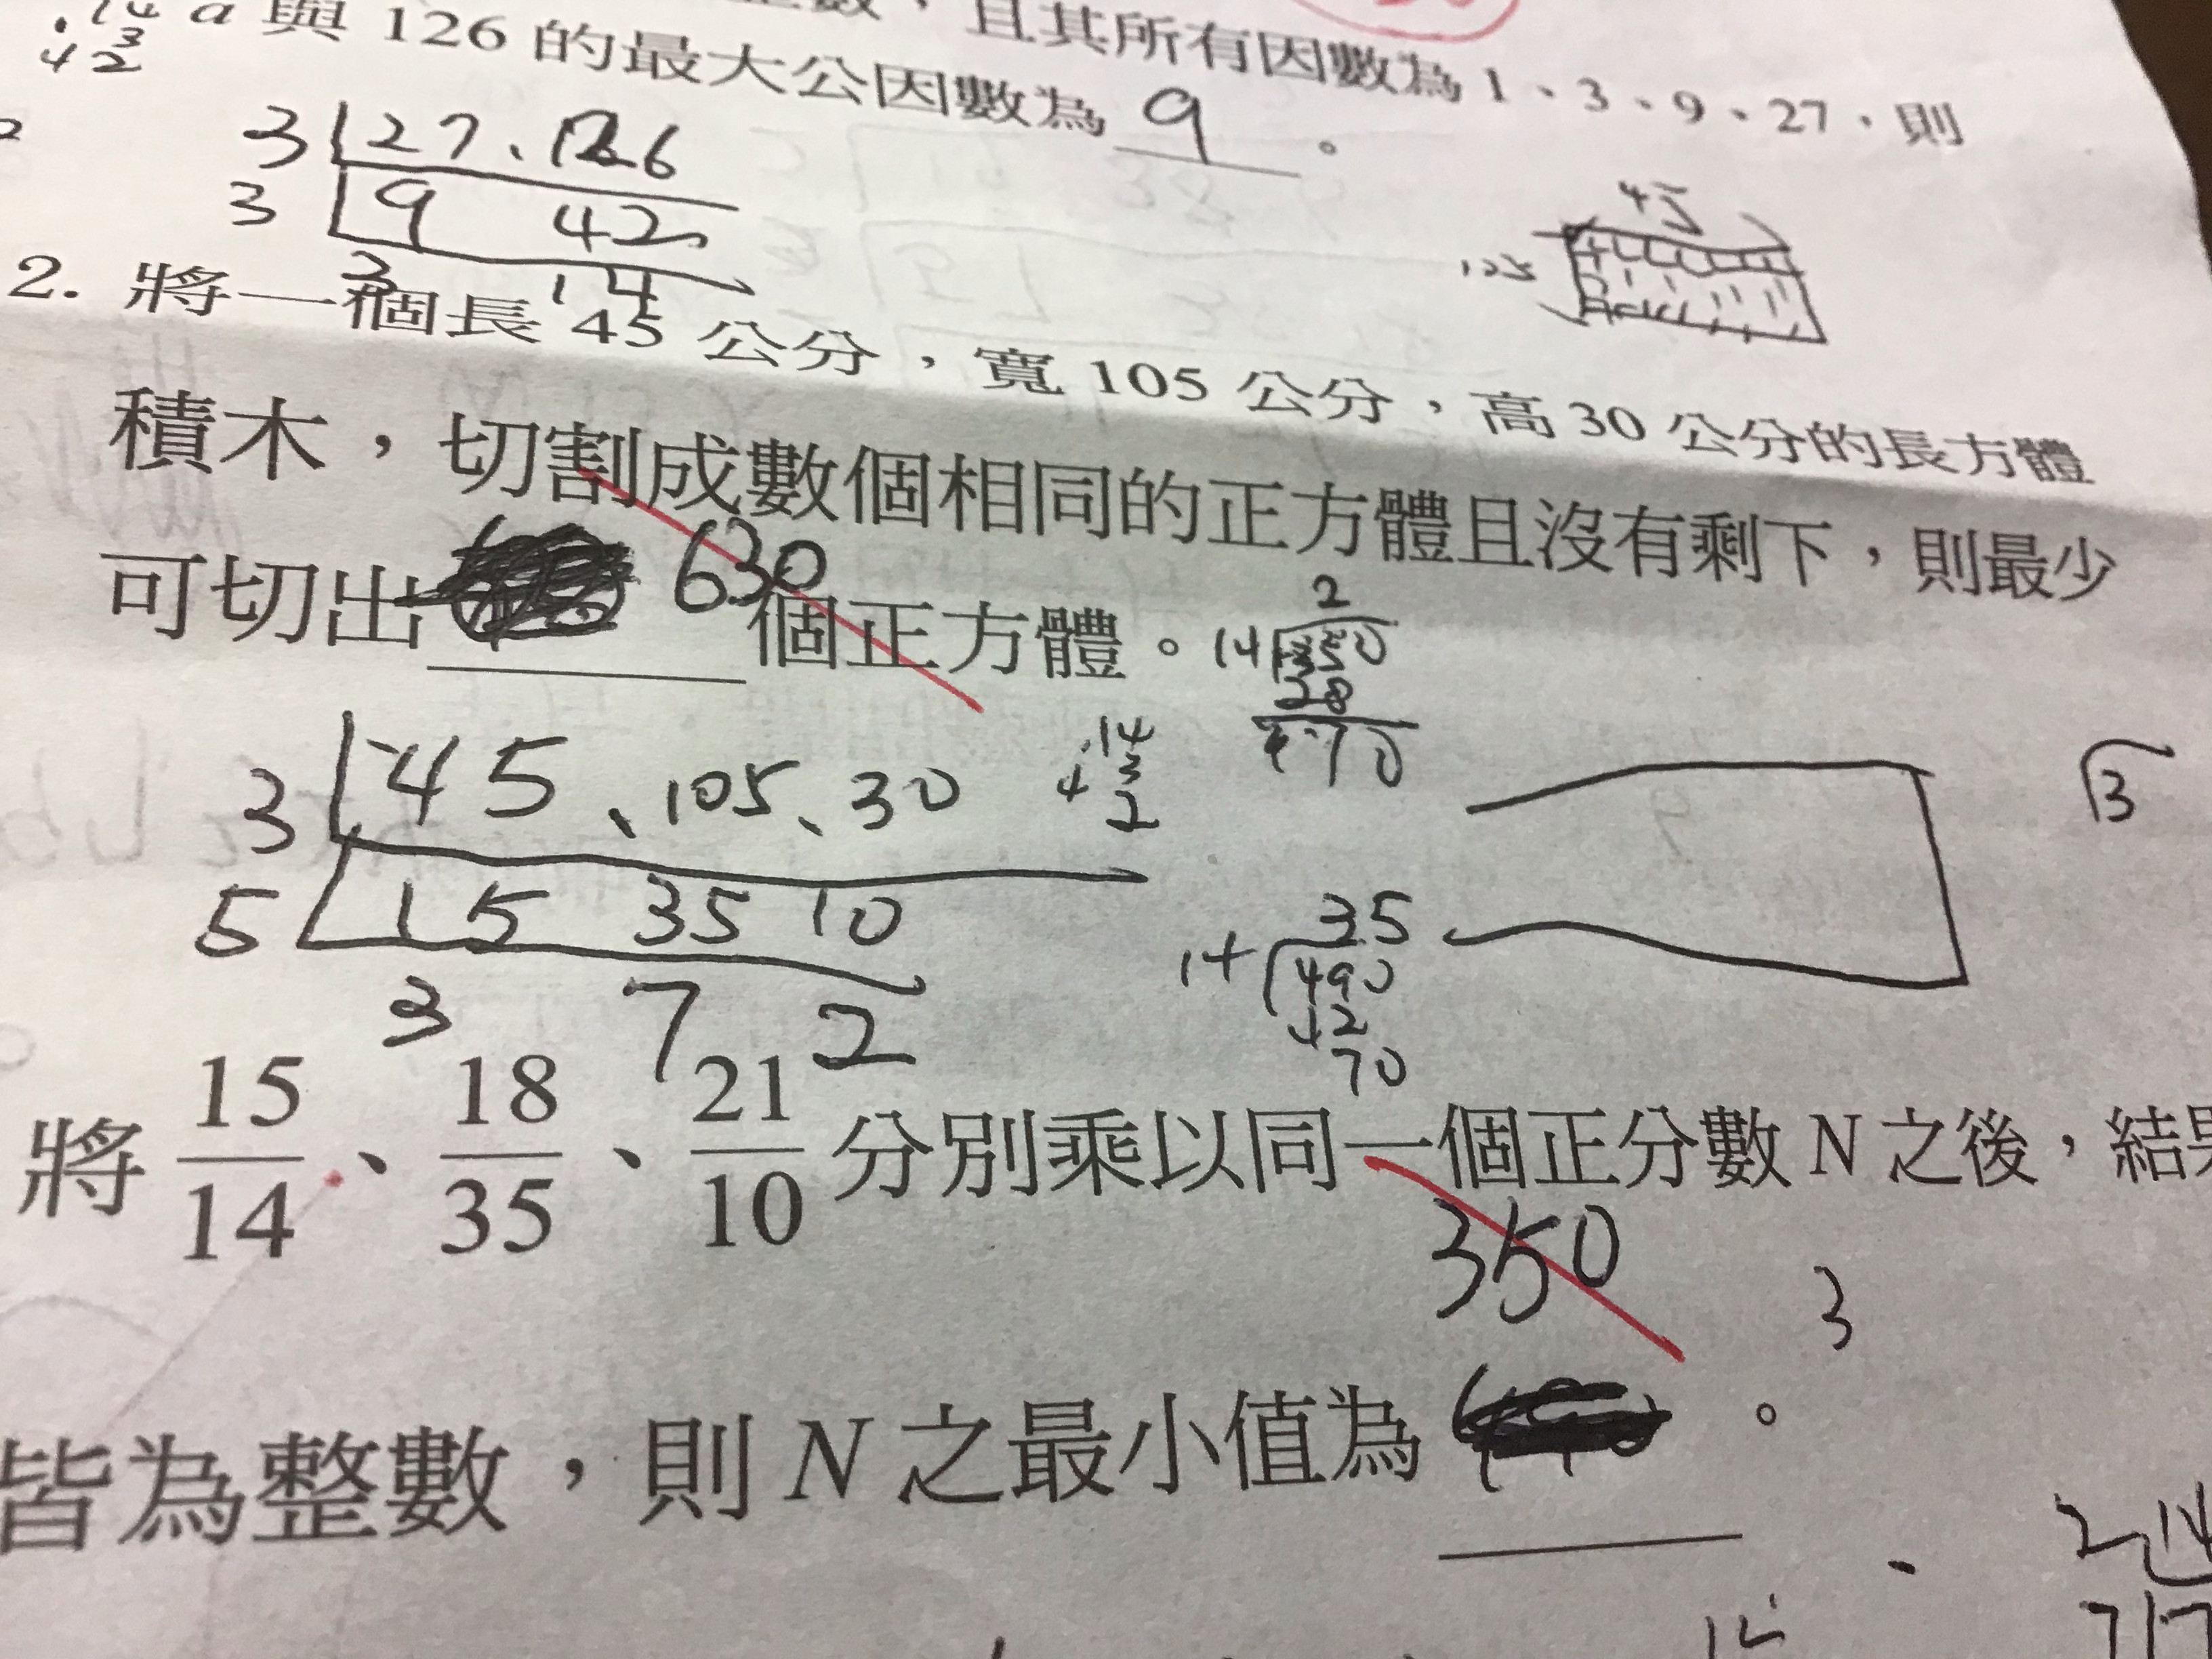 數，且其所有因數為 1、3、9、27，則
a 與 126 的最大公因數為 9 。
3 27、126
3 9 42
3 14
2. 將一個長 45 公分，寬 105 公分，高 30 公分的長方體
積木，切割成數個相同的正方體且沒有剩下，則最少
可切出 630 個正方體。
45
2
14 350
28
70
3 45、105、30
14
3
4 2
5 15 35 10
3 7 2
3
35
14 490
42
70
將 15/14、18/35、21/10 分別乘以同一個正分數 N 之後，結果
350
3
皆為整數，則 N 之最小值為 。
2 14
7 17